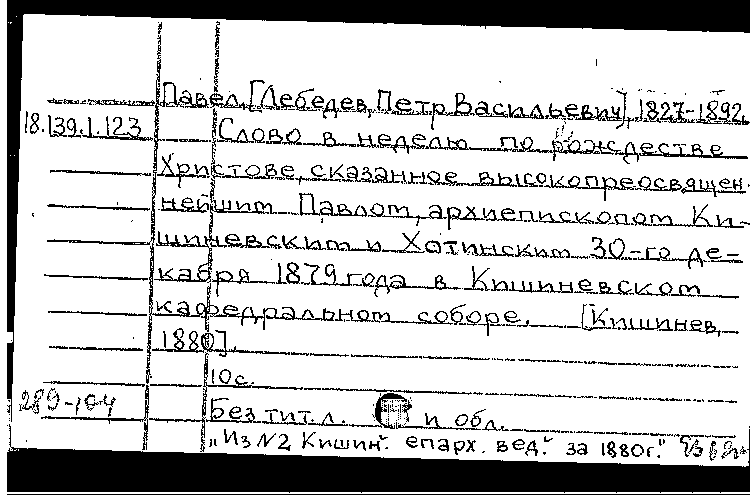 Павел, [Лебедев, Петр Васильевич], 1827-1892.
18.139.1.123 Слово в неделю по рождестве
Христове, сказанное высокопреосвящен-
нейшим Павлом, архиепископом Ки-
шиневским и Хотинским 30-го де-
кабря 1879 года в Кишиневском
кафедральном соборе. [Кишинев,
1880].
10с.
289-104 Без тит. л. и обл.
„Из N2 Кишин. епарх. вед." за 1880г."